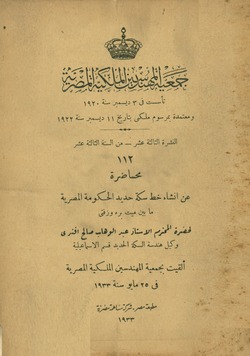 جمعية المهندسين الملكية المصرية
تأسست في ٣ ديسمبر سنة ١٩٢٠
ومعتمدة بمرسوم ملكي بتاريخ ١١ ديسمبر سنة ١٩٢٢
النشرة الثالثة عشر — من السنة الثالثة عشر
١١٢
محاضرة
عن انشاء خط سكة حديد الحكومة المصرية
ما بين ميت بره وزفتى
لحضرة المحترم الاستاذ عبد الوهاب صالح افندى
وكيل هندسة السكة الحديد قسم الاسماعيلية
ألقيت بجمعية المهندسين الملكية المصرية
فى ٢٥ مايو سنة ١٩٣٣
مطبعة مصر، شركة مساهمة مصرية
١٩٣٣